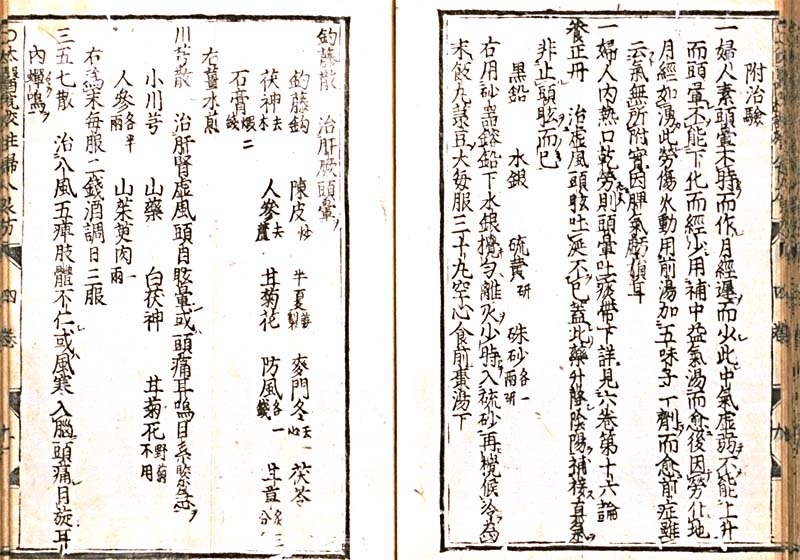 附治驗
一婦人素頭暈不時而作月經遲而少此中氣虛弱不能上升
而頭暈不能下化而經少用補中益氣湯而愈後因勞仆地
月經如湧此勞傷火動用前湯加五味子一劑而愈前症雖
云氣無所附實因脾氣虧損耳
一婦人內熱口乾勞則頭暈吐痰帶下詳見六卷第十六論
養正丹 治虛風頭眩吐涎不已蓋此藥升降陰陽補接真氣
非止頭眩而已
黑鉛 水銀 硫黃研 硃砂各一兩研
右用砂器鎔鉛下水銀攪勻離火少時入硫砂再攪候冷為
末飯丸菉豆大每服三十丸空心食前棗湯下
釣藤散 治肝厥頭暈
釣藤鈎 陳皮炒 半夏薑製 麥門冬去心 茯苓
茯神去木 人參去蘆 甘菊花 防風各一錢 甘草炙三分
石膏煅二錢
右薑水煎
川芎散 治肝腎虛風頭目眩暈或頭痛耳鳴目系緊急
小川芎 山藥 白茯神 甘菊花野菊不用
人參各半兩 山茱萸肉一兩
右為末每服二錢酒調日二服
三五七散 治八風五痺肢體不仁或風寒入腦頭痛目旋耳
內蟬鳴
醫 校註婦人良方 四卷